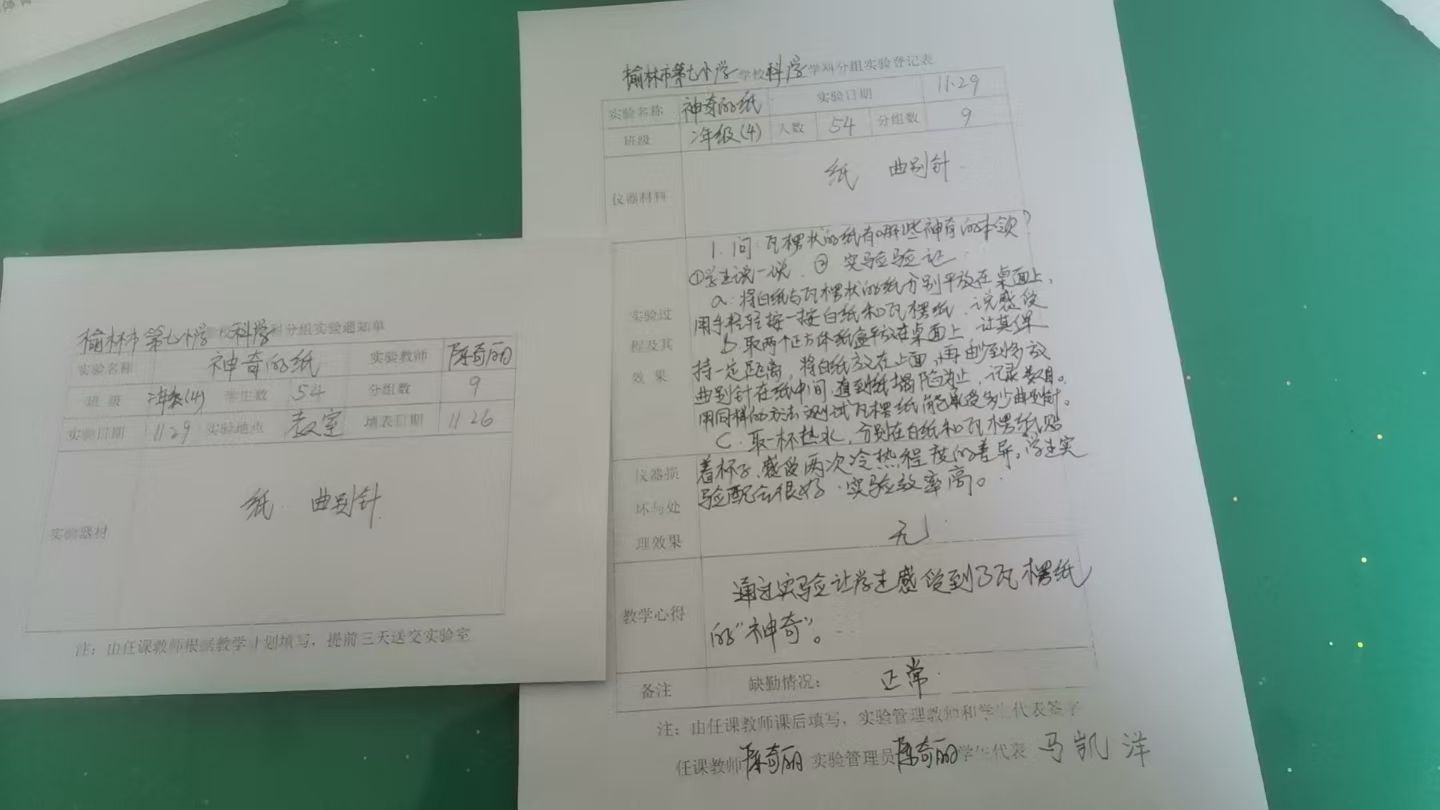 榆林市第七小学学校科学学科分组实验通知单
实验名称 神奇的纸 实验教师 陈奇丽
班级 二年级(4) 学生数 54 分组数 9
实验日期 11.29 实验地点 教室 填表日期 11.26
实验器材 纸 曲别针
注：由任课教师根据教学计划填写，提前三天送交实验室
榆林市第七小学学校科学学科分组实验登记表
实验名称 神奇的纸 实验日期 11.29
班级 二年级(4) 人数 54 分组数 9
仪器材料 纸 曲别针.
实验过程及其效果
1.问:瓦楞状的纸有哪些神奇的本领?
①学生说一说.② 实验验证.
a.将白纸与瓦楞状的纸分别平放在桌面上,
用手轻轻按一按白纸和瓦楞纸.说感受
b.取两个正方体纸盒平放在桌面上 让其保
持一定距离,将白纸放在上面,再由少到多放
曲别针在纸中间 直到纸塌陷为止,记录数目。
用同样的方法测试瓦楞纸能承受多少曲别针。
C.取一杯热水,分别在白纸和瓦楞纸贴
着杯子,感受两次冷热程度的差异,学生实
验配合很好.实验效率高。
仪器损坏与处理效果 无
教学心得
通过实验让学生感受到了瓦楞纸
的"神奇"。
备注 缺勤情况： 正常.
注：由任课教师课后填写、实验管理教师和学生代表签字
任课教师陈奇丽 实验管理员陈奇丽学生代表 马凯洋